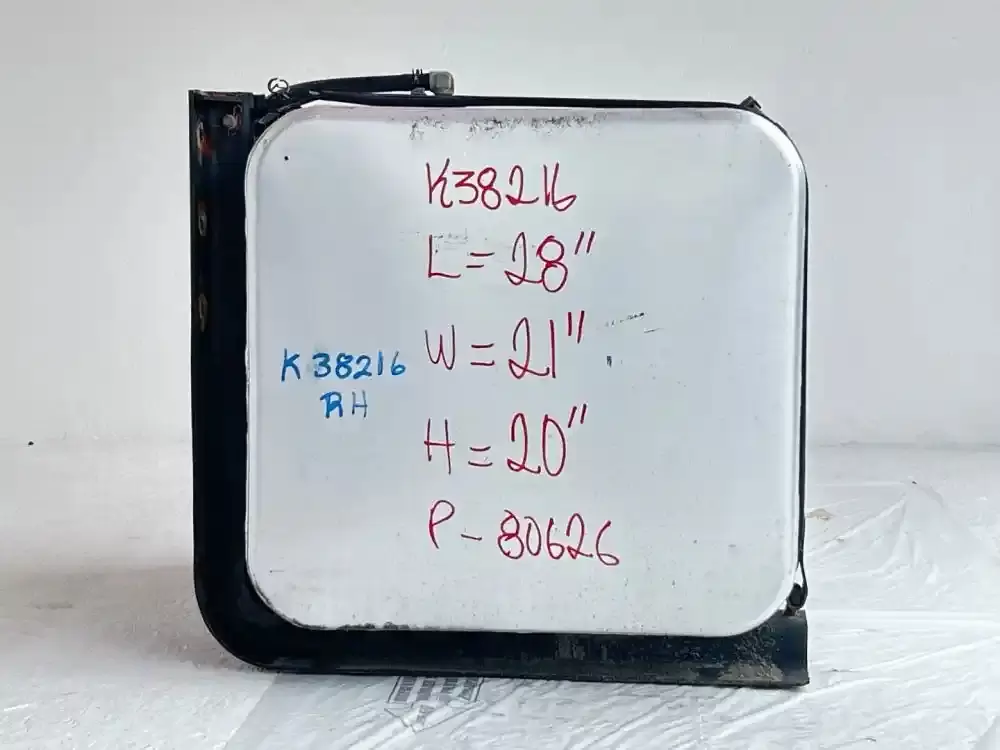 K38216
L = 28"
W = 21"
H = 20"
P - 80626
K 38216
RH